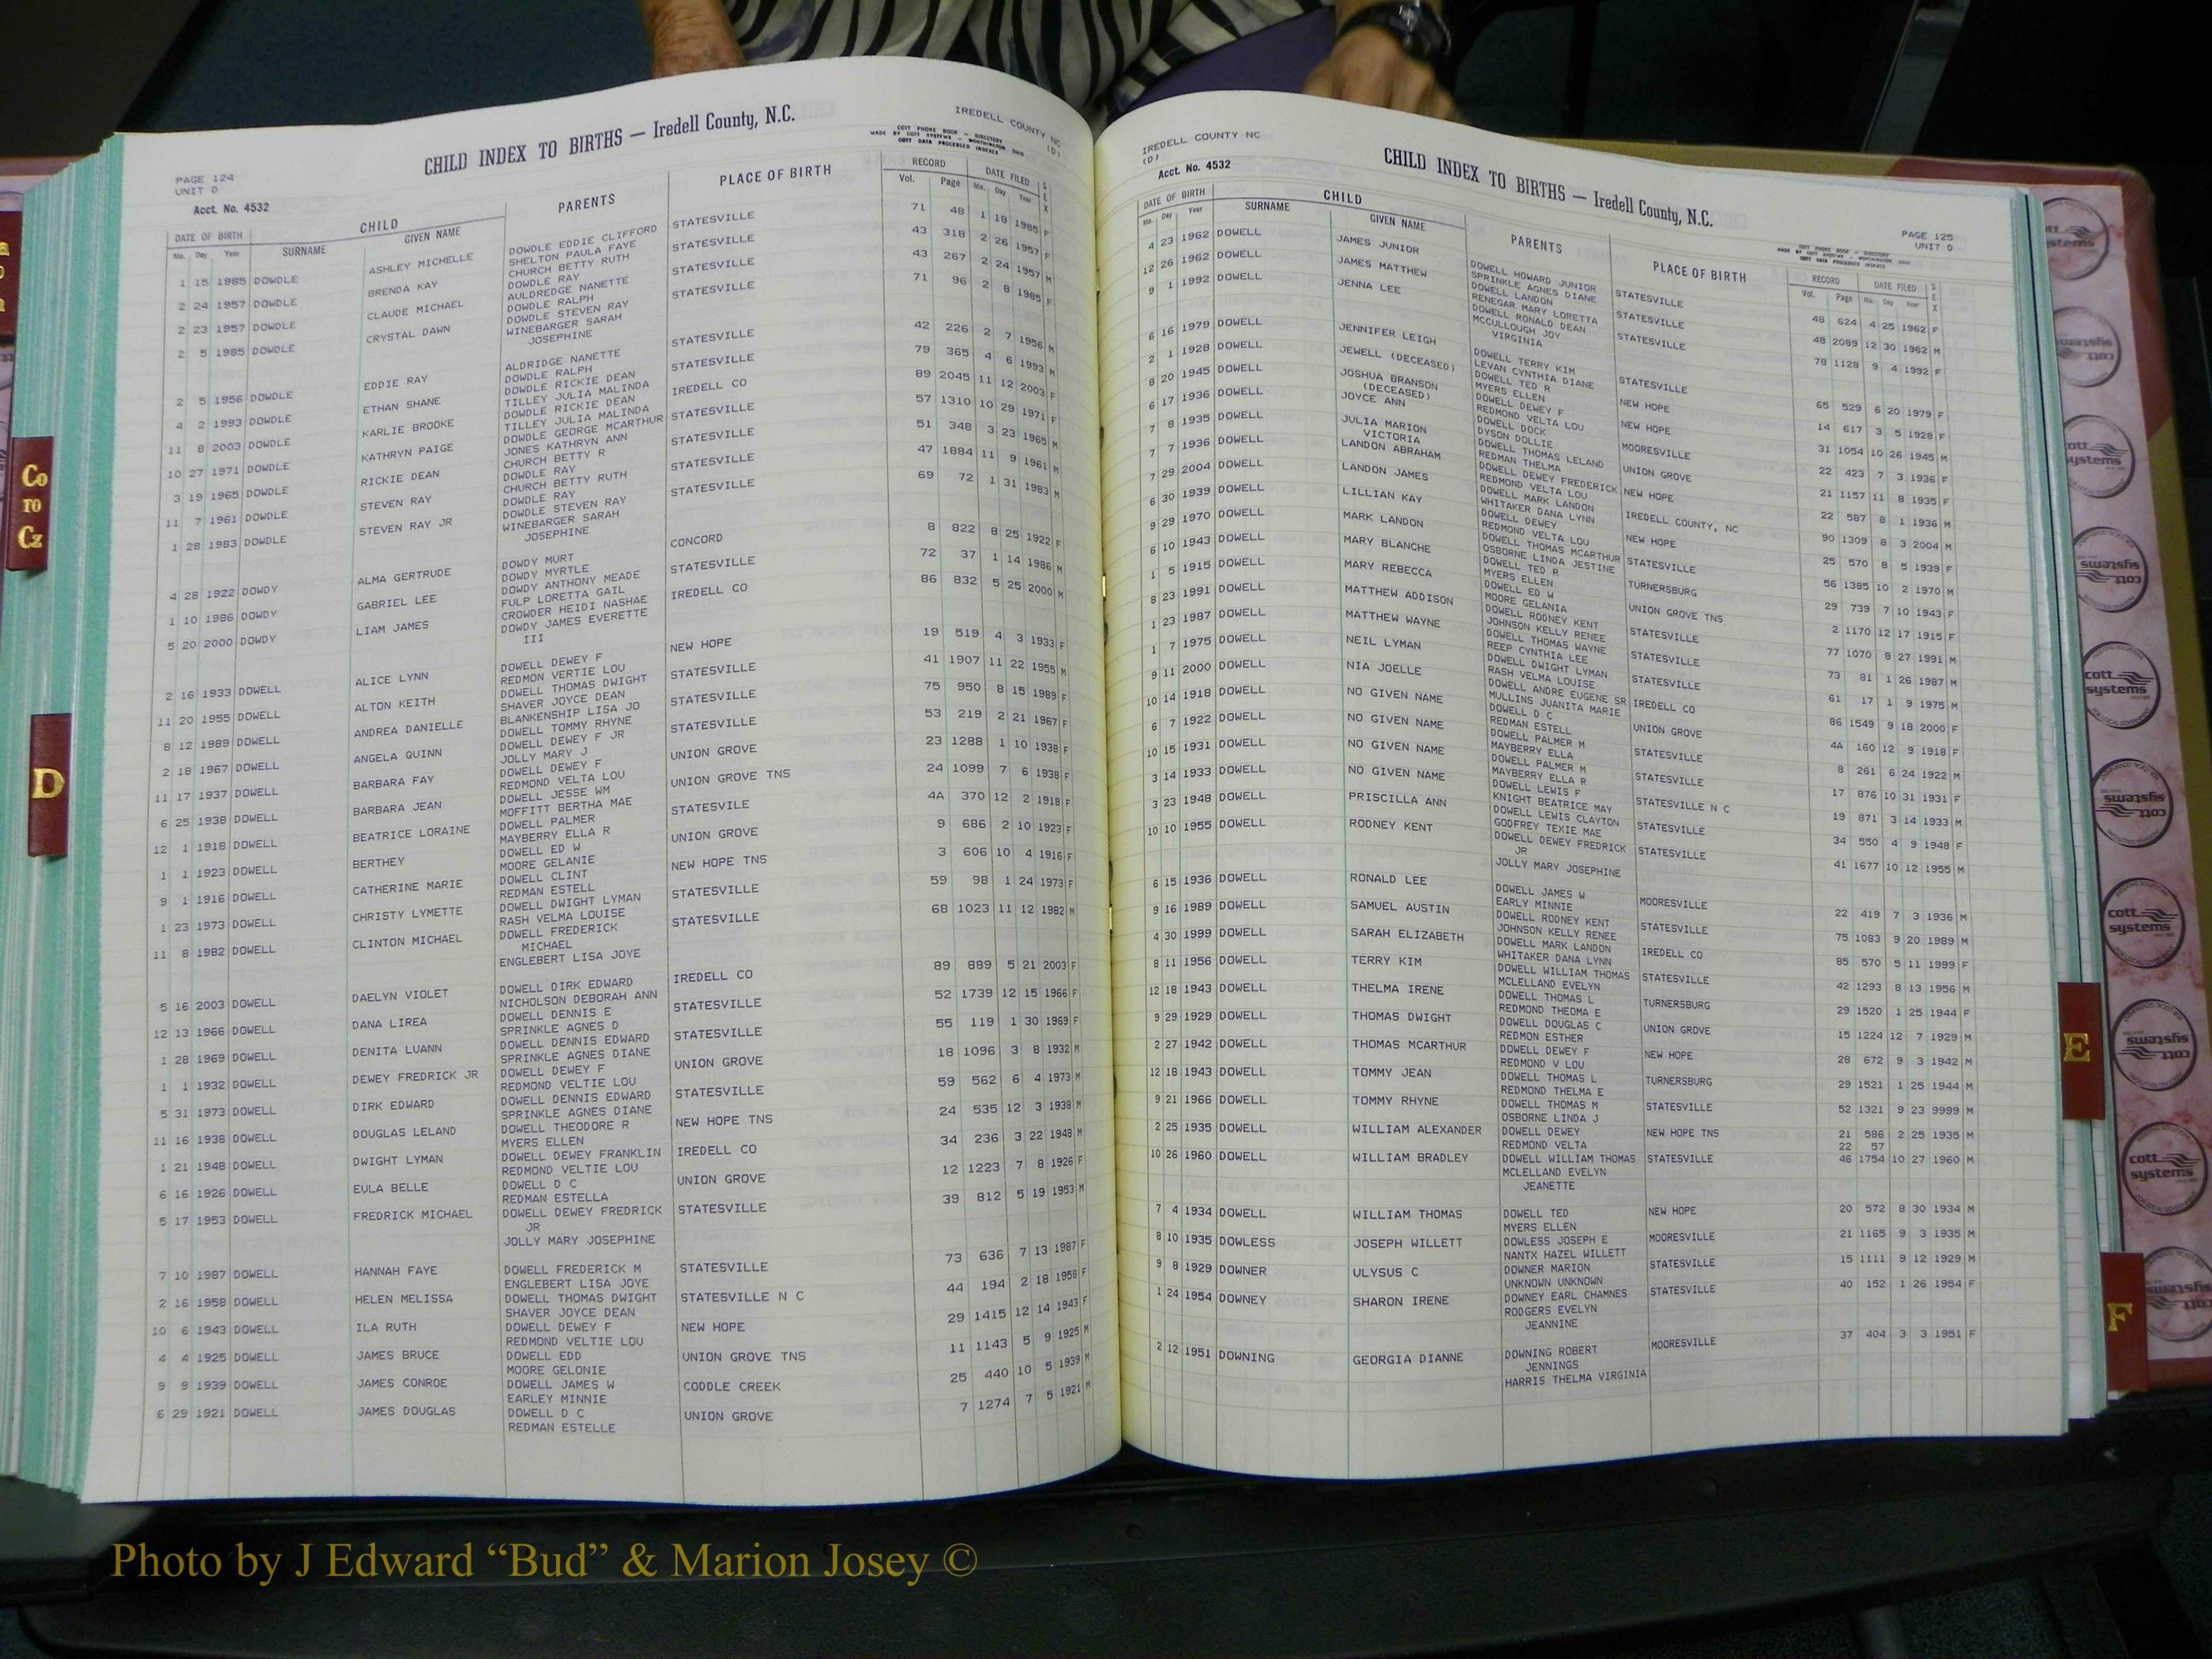 IREDELL COUNTY NC
(D)
CHILD INDEX TO BIRTHS — Iredell County, N.C.
COTT PHONE BOOK - DIRECTORY
MADE BY COTT SYSTEMS - WORTHINGTON, OHIO
COTT DATA PROCESSED INDEXES
PAGE 124
UNIT D
Acct. No. 4532
DATE OF BIRTH CHILD PARENTS PLACE OF BIRTH RECORD DATE FILED SEX
Mo. Day Year SURNAME GIVEN NAME Vol. Page Mo. Day Year
1 15 1985 DOWDLE ASHLEY MICHELLE DOWDLE EDDIE CLIFFORD STATESVILLE 71 48 1 18 1985 F
SHELTON PAULA FAYE
2 24 1957 DOWDLE BRENDA KAY CHURCH BETTY RUTH STATESVILLE 43 318 2 26 1957 F
DOWDLE RAY
2 23 1957 DOWDLE CLAUDE MICHAEL AULDREDGE NANETTE STATESVILLE 43 267 2 24 1957 M
DOWDLE RALPH
2 5 1985 DOWDLE CRYSTAL DAWN DOWDLE STEVEN RAY STATESVILLE 71 96 2 8 1985 F
WINEBARGER SARAH
JOSEPHINE
2 5 1956 DOWDLE EDDIE RAY ALDRIDGE NANETTE STATESVILLE 42 226 2 7 1956 M
DOWDLE RALPH
4 2 1993 DOWDLE ETHAN SHANE DOWDLE RICKIE DEAN STATESVILLE 79 365 4 6 1993 M
TILLEY JULIA MALINDA
11 8 2003 DOWDLE KARLIE BROOKE DOWDLE RICKIE DEAN IREDELL CO 89 2045 11 12 2003 F
TILLEY JULIA MALINDA
10 27 1971 DOWDLE KATHRYN PAIGE DOWDLE GEORGE MCARTHUR STATESVILLE 57 1310 10 29 1971 F
JONES KATHRYN ANN
3 19 1965 DOWDLE RICKIE DEAN CHURCH BETTY R STATESVILLE 51 348 3 23 1965 M
DOWDLE RAY
11 7 1961 DOWDLE STEVEN RAY CHURCH BETTY RUTH STATESVILLE 47 1884 11 9 1961 M
DOWDLE RAY
1 28 1983 DOWDLE STEVEN RAY JR DOWDLE STEVEN RAY STATESVILLE 69 72 1 31 1983 M
WINEBARGER SARAH
JOSEPHINE
4 28 1922 DOWDY ALMA GERTRUDE DOWDY MURT CONCORD 8 822 8 25 1922 F
DOWDY MYRTLE
1 10 1986 DOWDY GABRIEL LEE DOWDY ANTHONY MEADE STATESVILLE 72 37 1 14 1986 M
FULP LORETTA GAIL
5 20 2000 DOWDY LIAM JAMES CROWDER HEIDI NASHAE IREDELL CO 86 832 5 25 2000 M
DOWDY JAMES EVERETTE
III
2 16 1933 DOWELL ALICE LYNN DOWELL DEWEY F NEW HOPE 19 519 4 3 1933 F
REDMON VERTIE LOU
11 20 1955 DOWELL ALTON KEITH DOWELL THOMAS DWIGHT STATESVILLE 41 1907 11 22 1955 M
SHAVER JOYCE DEAN
8 12 1989 DOWELL ANDREA DANIELLE BLANKENSHIP LISA JO STATESVILLE 75 950 8 15 1989 F
DOWELL TOMMY RHYNE
2 18 1967 DOWELL ANGELA QUINN DOWELL DEWEY F JR STATESVILLE 53 219 2 21 1967 F
JOLLY MARY J
11 17 1937 DOWELL BARBARA FAY DOWELL DEWEY F UNION GROVE 23 1288 1 10 1938 F
REDMOND VELTA LOU
6 25 1938 DOWELL BARBARA JEAN DOWELL JESSE WM UNION GROVE TNS 24 1099 7 6 1938 F
MOFFITT BERTHA MAE
12 1 1918 DOWELL BEATRICE LORAINE DOWELL PALMER STATESVILE 4A 370 12 2 1918 F
MAYBERRY ELLA R
1 1 1923 DOWELL BERTHEY DOWELL ED W UNION GROVE 9 686 2 10 1923 F
MOORE GELANIE
9 1 1916 DOWELL CATHERINE MARIE DOWELL CLINT NEW HOPE TNS 3 606 10 4 1916 F
REDMAN ESTELL
1 23 1973 DOWELL CHRISTY LYMETTE DOWELL DWIGHT LYMAN STATESVILLE 59 98 1 24 1973 F
RASH VELMA LOUISE
11 8 1982 DOWELL CLINTON MICHAEL DOWELL FREDERICK STATESVILLE 68 1023 11 12 1982 M
MICHAEL
ENGLEBERT LISA JOYE
5 16 2003 DOWELL DAELYN VIOLET DOWELL DIRK EDWARD IREDELL CO 89 889 5 21 2003 F
NICHOLSON DEBORAH ANN
12 13 1966 DOWELL DANA LIREA DOWELL DENNIS E STATESVILLE 52 1739 12 15 1966 F
SPRINKLE AGNES D
1 28 1969 DOWELL DENITA LUANN DOWELL DENNIS EDWARD STATESVILLE 55 119 1 30 1969 F
SPRINKLE AGNES DIANE
1 1 1932 DOWELL DEWEY FREDRICK JR DOWELL DEWEY F UNION GROVE 18 1096 3 8 1932 M
REDMOND VELTIE LOU
5 31 1973 DOWELL DIRK EDWARD DOWELL DENNIS EDWARD STATESVILLE 59 562 6 4 1973 M
SPRINKLE AGNES DIANE
11 16 1938 DOWELL DOUGLAS LELAND DOWELL THEODORE R NEW HOPE TNS 24 535 12 3 1938 M
MYERS ELLEN
1 21 1948 DOWELL DWIGHT LYMAN DOWELL DEWEY FRANKLIN IREDELL CO 34 236 3 22 1948 M
REDMOND VELTIE LOU
6 16 1926 DOWELL EULA BELLE DOWELL D C UNION GROVE 12 1223 7 8 1926 F
REDMAN ESTELLA
5 17 1953 DOWELL FREDRICK MICHAEL DOWELL DEWEY FREDRICK STATESVILLE 39 812 5 19 1953 M
JR
JOLLY MARY JOSEPHINE
7 10 1987 DOWELL HANNAH FAYE DOWELL FREDERICK M STATESVILLE 73 636 7 13 1987 F
ENGLEBERT LISA JOYE
2 16 1958 DOWELL HELEN MELISSA DOWELL THOMAS DWIGHT STATESVILLE N C 44 194 2 18 1958 F
SHAVER JOYCE DEAN
10 6 1943 DOWELL ILA RUTH DOWELL DEWEY F NEW HOPE 29 1415 12 14 1943 F
REDMOND VELTIE LOU
4 4 1925 DOWELL JAMES BRUCE DOWELL EDD UNION GROVE TNS 11 1143 5 9 1925 M
MOORE GELONIE
9 9 1939 DOWELL JAMES CONROE DOWELL JAMES W CODDLE CREEK 25 440 10 5 1939 M
EARLEY MINNIE
6 29 1921 DOWELL JAMES DOUGLAS DOWELL D C UNION GROVE 7 1274 7 5 1921 M
REDMAN ESTELLE
IREDELL COUNTY NC
(D)
Acct. No. 4532
CHILD INDEX TO BIRTHS — Iredell County, N.C.
PAGE 125
UNIT D
COTT PHONE BOOK - DIRECTORY
MADE BY COTT SYSTEMS - WORTHINGTON, OHIO
COTT DATA PROCESSED INDEXES
DATE OF BIRTH CHILD PARENTS PLACE OF BIRTH RECORD DATE FILED SEX
Mo. Day Year SURNAME GIVEN NAME Vol. Page Mo. Day Year
4 23 1962 DOWELL JAMES JUNIOR DOWELL HOWARD JUNIOR STATESVILLE 48 624 4 25 1962 F
SPRINKLE AGNES DIANE
12 26 1962 DOWELL JAMES MATTHEW DOWELL LANDON STATESVILLE 48 2089 12 30 1962 M
RENEGAR MARY LORETTA
9 1 1992 DOWELL JENNA LEE DOWELL RONALD DEAN STATESVILLE 78 1128 9 4 1992 F
MCCULLOUGH JOY
VIRGINIA
6 16 1979 DOWELL JENNIFER LEIGH DOWELL TERRY KIM STATESVILLE 65 529 6 20 1979 F
LEVAN CYNTHIA DIANE
2 1 1928 DOWELL JEWELL (DECEASED) DOWELL TED R NEW HOPE 14 617 3 5 1928 F
MYERS ELLEN
8 20 1945 DOWELL JOSHUA BRANSON DOWELL DEWEY F NEW HOPE 31 1054 10 26 1945 M
(DECEASED) REDMOND VELTA LOU
6 17 1936 DOWELL JOYCE ANN DOWELL DOCK MOORESVILLE 22 423 7 3 1936 F
DYSON DOLLIE
7 8 1935 DOWELL JULIA MARION DOWELL THOMAS LELAND UNION GROVE 21 1157 11 8 1935 F
VICTORIA REDMAN THELMA
7 7 1936 DOWELL LANDON ABRAHAM DOWELL DEWEY FREDERICK NEW HOPE 22 587 8 1 1936 M
REDMOND VELTA LOU
7 29 2004 DOWELL LANDON JAMES DOWELL MARK LANDON IREDELL COUNTY, NC 90 1309 8 3 2004 M
WHITAKER DANA LYNN
6 30 1939 DOWELL LILLIAN KAY DOWELL DEWEY NEW HOPE 25 570 8 5 1939 F
REDMOND VELTA LOU
9 29 1970 DOWELL MARK LANDON DOWELL THOMAS MCARTHUR STATESVILLE 56 1385 10 2 1970 M
OSBORNE LINDA JESTINE
6 10 1943 DOWELL MARY BLANCHE DOWELL TED R TURNERSBURG 29 739 7 10 1943 F
MYERS ELLEN
1 5 1915 DOWELL MARY REBECCA DOWELL ED W UNION GROVE TNS 2 1170 12 17 1915 F
MOORE GELANIA
8 23 1991 DOWELL MATTHEW ADDISON DOWELL RODNEY KENT STATESVILLE 77 1070 8 27 1991 M
JOHNSON KELLY RENEE
1 23 1987 DOWELL MATTHEW WAYNE DOWELL THOMAS WAYNE STATESVILLE 73 81 1 26 1987 M
REEP CYNTHIA LEE
1 7 1975 DOWELL NEIL LYMAN DOWELL DWIGHT LYMAN STATESVILLE 61 17 1 9 1975 M
RASH VELMA LOUISE
9 11 2000 DOWELL NIA JOELLE DOWELL ANDRE EUGENE SR IREDELL CO 86 1549 9 18 2000 F
MULLINS JUANITA MARIE
10 14 1918 DOWELL NO GIVEN NAME DOWELL D C UNION GROVE 4A 160 12 9 1918 F
REDMAN ESTELL
6 7 1922 DOWELL NO GIVEN NAME DOWELL PALMER M STATESVILLE 8 261 6 24 1922 M
MAYBERRY ELLA
10 15 1931 DOWELL NO GIVEN NAME DOWELL PALMER M STATESVILLE 17 876 10 31 1931 F
MAYBERRY ELLA R
3 14 1933 DOWELL NO GIVEN NAME DOWELL LEWIS F STATESVILLE N C 19 871 3 14 1933 M
KNIGHT BEATRICE MAY
3 23 1948 DOWELL PRISCILLA ANN DOWELL LEWIS CLAYTON STATESVILLE 34 550 4 9 1948 F
GODFREY TEXIE MAE
10 10 1955 DOWELL RODNEY KENT DOWELL DEWEY FREDRICK STATESVILLE 41 1677 10 12 1955 M
JR
JOLLY MARY JOSEPHINE
6 15 1936 DOWELL RONALD LEE DOWELL JAMES W MOORESVILLE 22 419 7 3 1936 M
EARLY MINNIE
9 16 1989 DOWELL SAMUEL AUSTIN DOWELL RODNEY KENT STATESVILLE 75 1083 9 20 1989 M
JOHNSON KELLY RENEE
4 30 1999 DOWELL SARAH ELIZABETH DOWELL MARK LANDON IREDELL CO 85 570 5 11 1999 F
WHITAKER DANA LYNN
8 11 1956 DOWELL TERRY KIM DOWELL WILLIAM THOMAS STATESVILLE 42 1293 8 13 1956 M
MCLELLAND EVELYN
12 18 1943 DOWELL THELMA IRENE DOWELL THOMAS L TURNERSBURG 29 1520 1 25 1944 F
REDMOND THEOMA E
9 29 1929 DOWELL THOMAS DWIGHT DOWELL DOUGLAS C UNION GROVE 15 1224 12 7 1929 M
REDMON ESTHER
2 27 1942 DOWELL THOMAS MCARTHUR DOWELL DEWEY F NEW HOPE 28 672 9 3 1942 M
REDMOND V LOU
12 18 1943 DOWELL TOMMY JEAN DOWELL THOMAS L TURNERSBURG 29 1521 1 25 1944 M
REDMOND THELMA E
9 21 1966 DOWELL TOMMY RHYNE DOWELL THOMAS M STATESVILLE 52 1321 9 23 9999 M
OSBORNE LINDA J
2 25 1935 DOWELL WILLIAM ALEXANDER DOWELL DEWEY NEW HOPE TNS 21 586 2 25 1935 M
REDMOND VELTA 22 57
10 26 1960 DOWELL WILLIAM BRADLEY DOWELL WILLIAM THOMAS STATESVILLE 46 1754 10 27 1960 M
MCLELLAND EVELYN
JEANETTE
7 4 1934 DOWELL WILLIAM THOMAS DOWELL TED NEW HOPE 20 572 8 30 1934 M
MYERS ELLEN
8 10 1935 DOWLESS JOSEPH WILLETT DOWLESS JOSEPH E MOORESVILLE 21 1165 9 3 1935 M
NANTX HAZEL WILLETT
9 8 1929 DOWNER ULYSUS C DOWNER MARION STATESVILLE 15 1111 9 12 1929 M
UNKNOWN UNKNOWN
1 24 1954 DOWNEY SHARON IRENE DOWNEY EARL CHAMNES STATESVILLE 40 152 1 26 1954 F
RODGERS EVELYN
JEANNINE
2 12 1951 DOWNING GEORGIA DIANNE DOWNING ROBERT MOORESVILLE 37 404 3 3 1951 F
JENNINGS
HARRIS THELMA VIRGINIA
Co
TO
Cz
D
E
F
cott
systems
cott
systems
cott
systems
cott
systems
Photo by J Edward “Bud” & Marion Josey ©